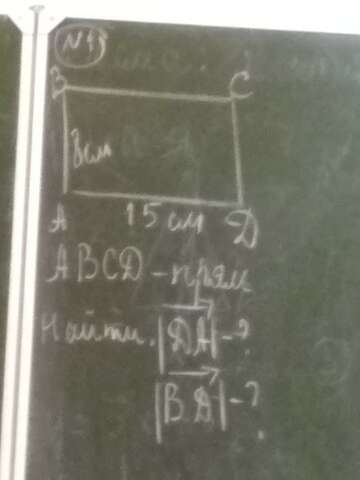 №1
B C
8см
A 15 см D
ABCD - прям
Найти. |DA| - ?
|BD| - ?